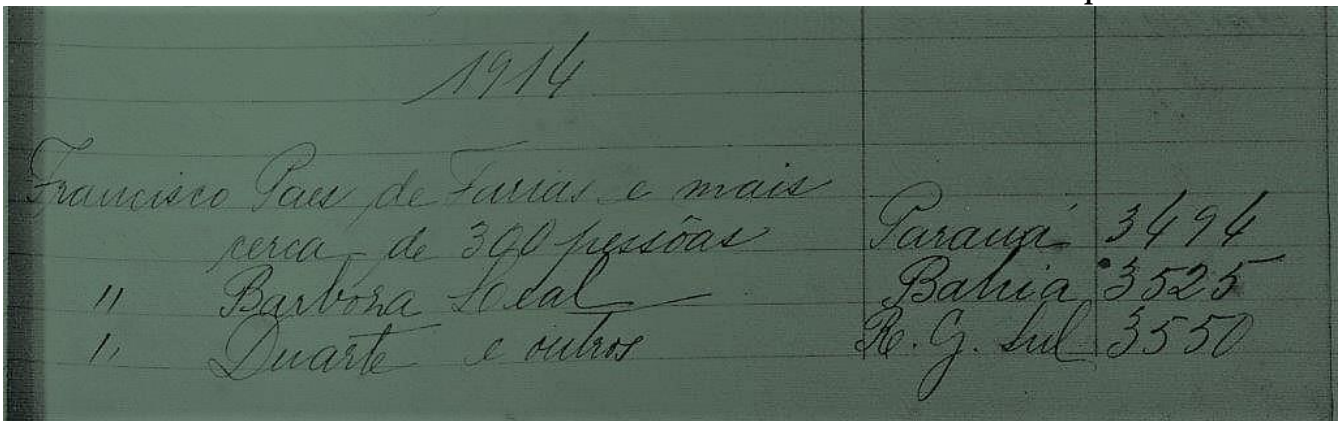 1914
Francisco Paes de Farias e mais
cerca de 300 pessôas Paraná 3494
" Barboza Leal Bahia 3525
" Duarte e outros R. G. Sul 3550